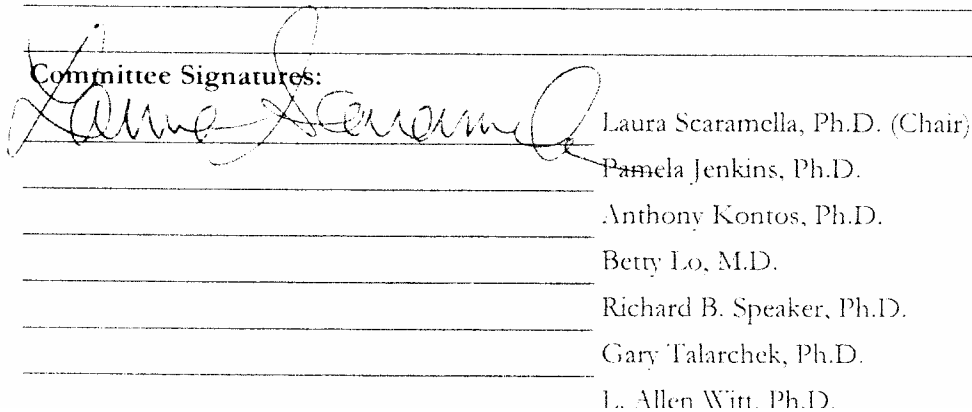 Committee Signatures:
Laura Scaramella Laura Scaramella, Ph.D. (Chair)
Pamela Jenkins, Ph.D.
Anthony Kontos, Ph.D.
Betty Lo, M.D.
Richard B. Speaker, Ph.D.
Gary Talarchek, Ph.D.
L. Allen Witt, Ph.D.